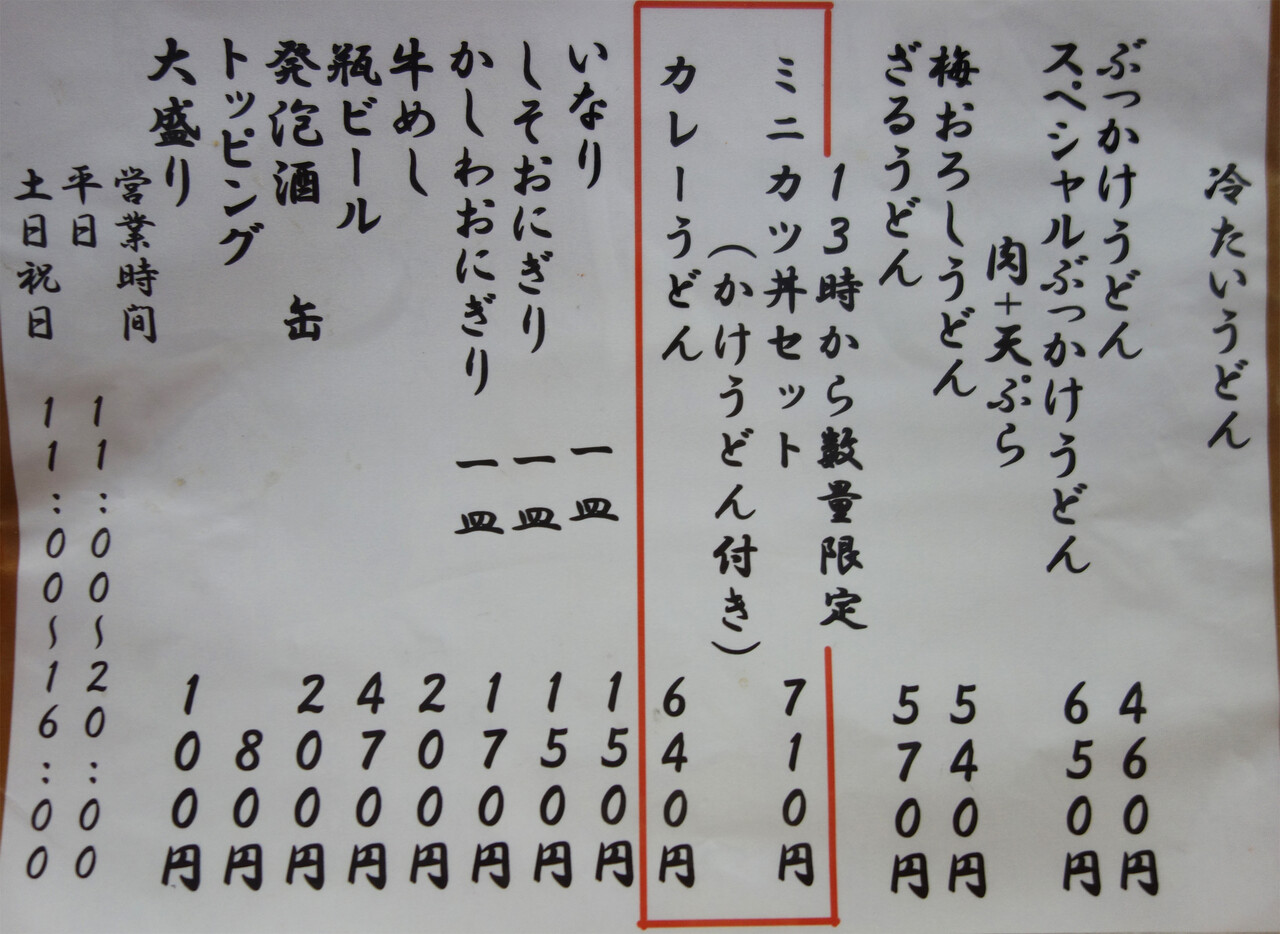 冷たいうどん
ぶっかけうどん 460円
スペシャルぶっかけうどん 650円
肉+天ぷら
梅おろしうどん 540円
ざるうどん 570円
13時から数量限定
ミニカツ丼セット 710円
(かけうどん付き)
カレーうどん 640円
いなり 一皿 150円
しそおにぎり 一皿 150円
かしわおにぎり 一皿 170円
牛めし 200円
瓶ビール 470円
発泡酒 缶 200円
トッピング 80円
大盛り 100円
営業時間
平日 11:00~20:00
土日祝日 11:00~16:00